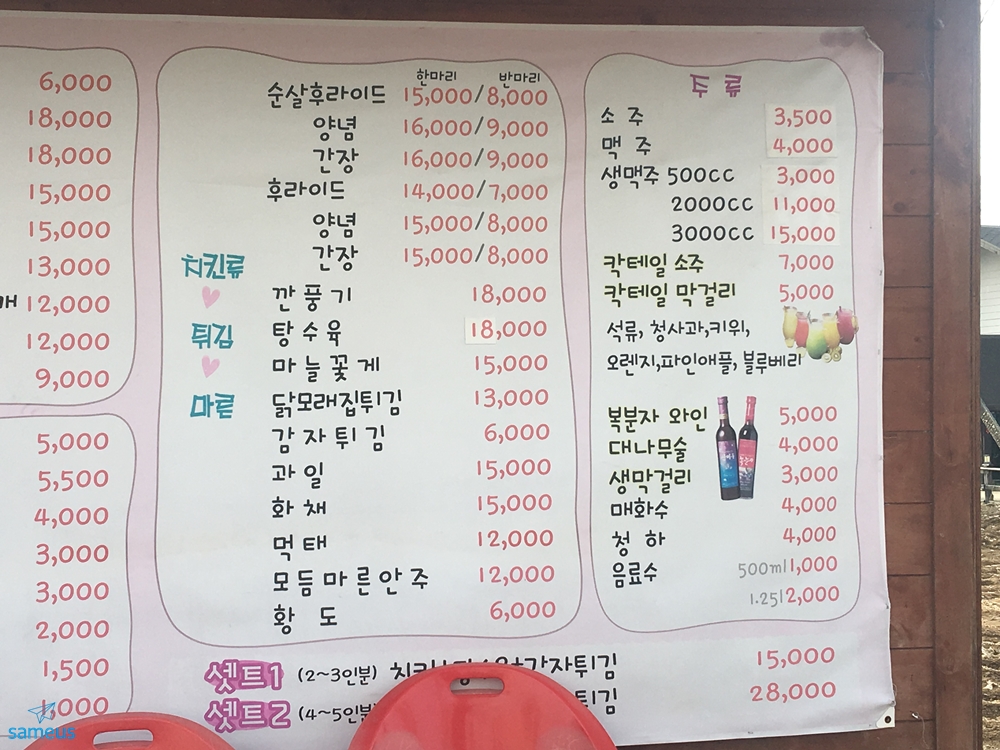 6,000
18,000
18,000
15,000
15,000
13,000
개 12,000
12,000
9,000
5,000
5,500
4,000
3,000
3,000
2,000
1,500
,000
한마리 반마리
순살후라이드 15,000/8,000
양념 16,000/9,000
간장 16,000/9,000
후라이드 14,000/7,000
양념 15,000/8,000
간장 15,000/8,000
치킨류
♥
튀김
♥
마른
깐풍기 18,000
탕수육 18,000
마늘꽃게 15,000
닭모래집튀김 13,000
감자튀김 6,000
과일 15,000
화채 15,000
먹태 12,000
모듬마른안주 12,000
황도 6,000
주류
소주 3,500
맥주 4,000
생맥주 500cc 3,000
2000cc 11,000
3000cc 15,000
칵테일 소주 7,000
칵테일 막걸리 5,000
석류, 청사과,키위,
오렌지,파인애플, 블루베리
복분자 와인 5,000
대나무술 4,000
생막걸리 3,000
매화수 4,000
청하 4,000
음료수 500ml 1,000
1.25l 2,000
셋트1 (2~3인분) +감자튀김 15,000
셋트2 (4~5인분) 튀김 28,000
sameus